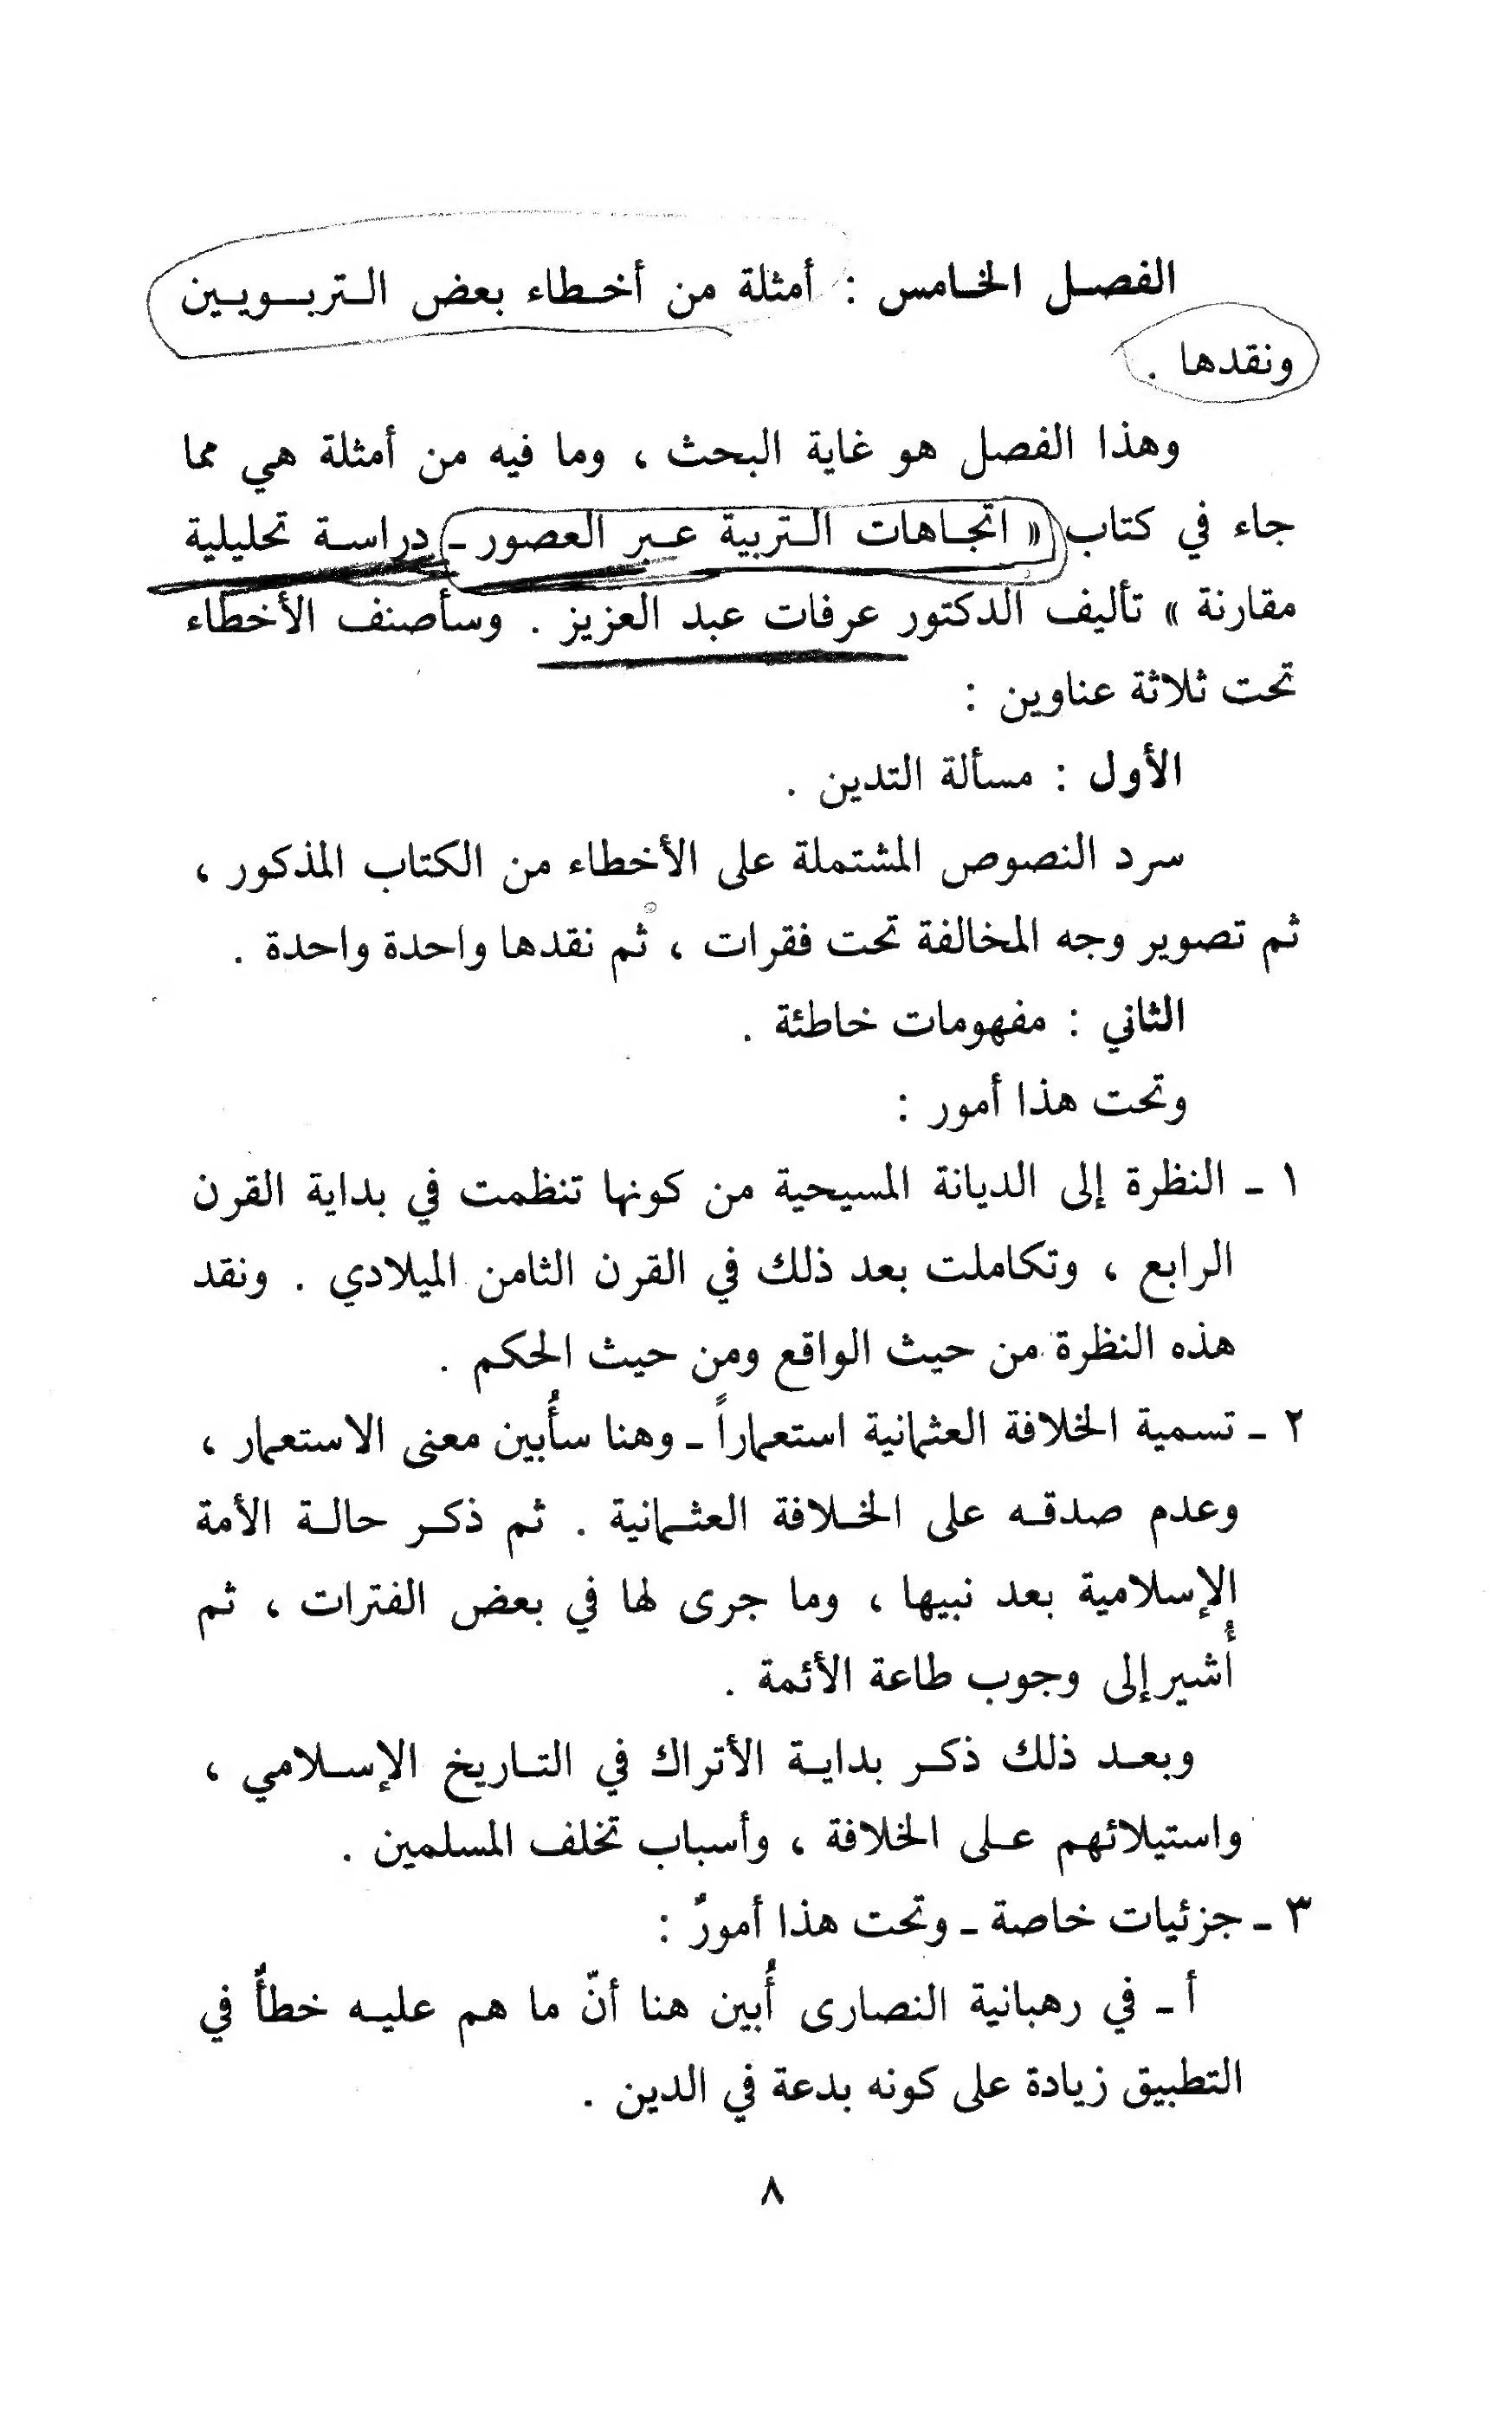 الفصل الخامس : أمثلة من أخطاء بعض التربويين
ونقدها .
وهذا الفصل هو غاية البحث ، وما فيه من أمثلة هي مما
جاء في كتاب « اتجاهات التربية عبر العصور ـ دراسة تحليلية
مقارنة » تأليف الدكتور عرفات عبد العزيز . وسأصنف الأخطاء
تحت ثلاثة عناوين :
الأول : مسألة التدين .
سرد النصوص المشتملة على الأخطاء من الكتاب المذكور ،
ثم تصوير وجه المخالفة تحت فقرات ، ثم نقدها واحدة واحدة .
الثاني : مفهومات خاطئة .
وتحت هذا أمور :
١ ـ النظرة إلى الديانة المسيحية من كونها تنظمت في بداية القرن
الرابع ، وتكاملت بعد ذلك في القرن الثامن الميلادي . ونقد
هذه النظرة من حيث الواقع ومن حيث الحكم .
٢ ـ تسمية الخلافة العثمانية استعماراً ـ وهنا سأُبين معنى الاستعمار ،
وعدم صدقه على الخلافة العثمانية . ثم ذكر حالة الأمة
الإسلامية بعد نبيها ، وما جرى لها في بعض الفترات ، ثم
أُشير إلى وجوب طاعة الأئمة .
وبعد ذلك ذكر بداية الأتراك في التاريخ الإسلامي ،
واستيلائهم على الخلافة ، وأسباب تخلف المسلمين .
٣ ـ جزئيات خاصة ـ وتحت هذا أمورٌ :
أ ـ في رهبانية النصارى أُبين هنا أنّ ما هم عليه خطأٌ في
التطبيق زيادة على كونه بدعة في الدين .
٨